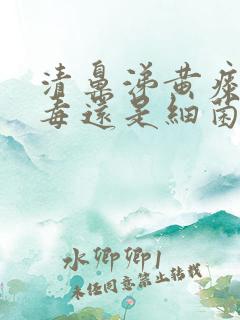 清鼻涕黄痰
毒还是细菌
水卿卿1
未经同意禁止转载